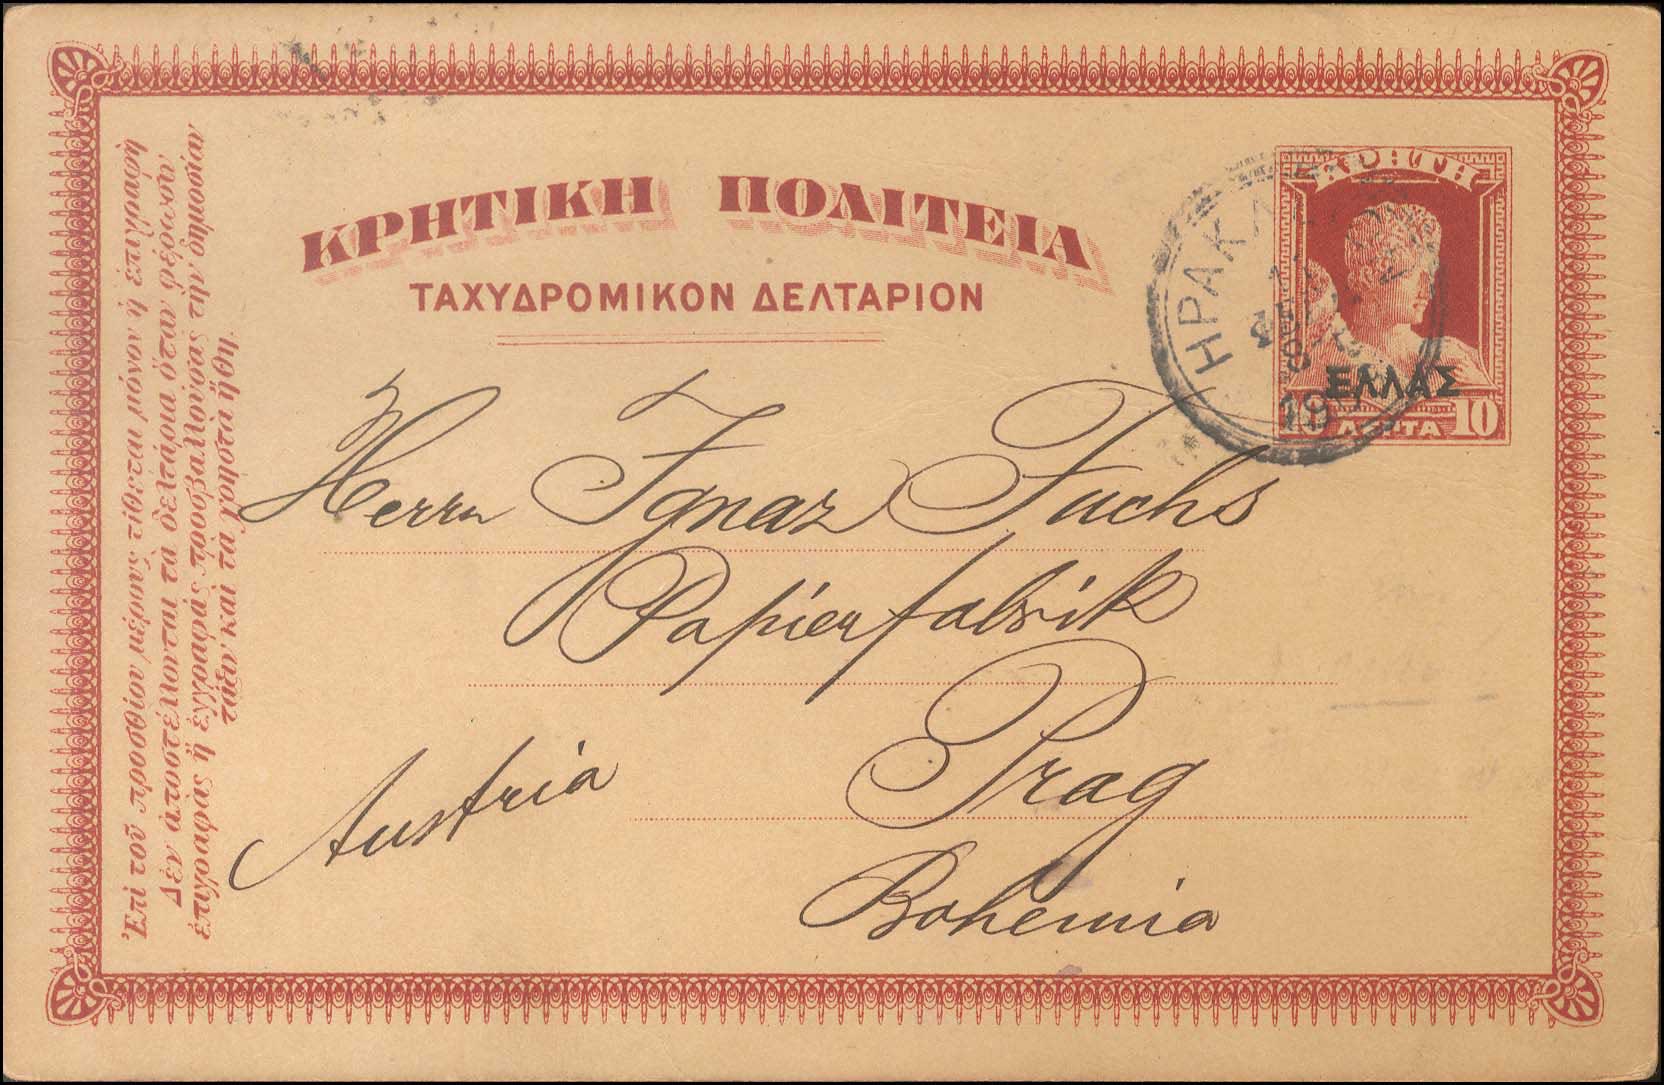 ΚΡΗΤΙΚΗ ΠΟΛΙΤΕΙΑ
ΤΑΧΥΔΡΟΜΙΚΟΝ ΔΕΛΤΑΡΙΟΝ
ΚΡΗΤΗ
ΕΛΛΑΣ
10 ΛΕΠΤΑ 10
ΗΡΑΚΛΕΙΟΝ
Ἐπὶ τοῦ προσθίου μέρους τίθεται μόνον ἡ ἐπιγραφὴ
Δὲν ἀποστέλλονται τὰ δελτάρια ὅταν φέρωσιν
ἐπιγραφὰς ἢ ἐγγραφὰς προσβαλλούσας τὴν δημοσίαν
τάξιν καὶ τὰ χρηστὰ ἤθη.
Herrn Ignaz Fuchs
Papierfabrik
Prag
Austria
Bohemia